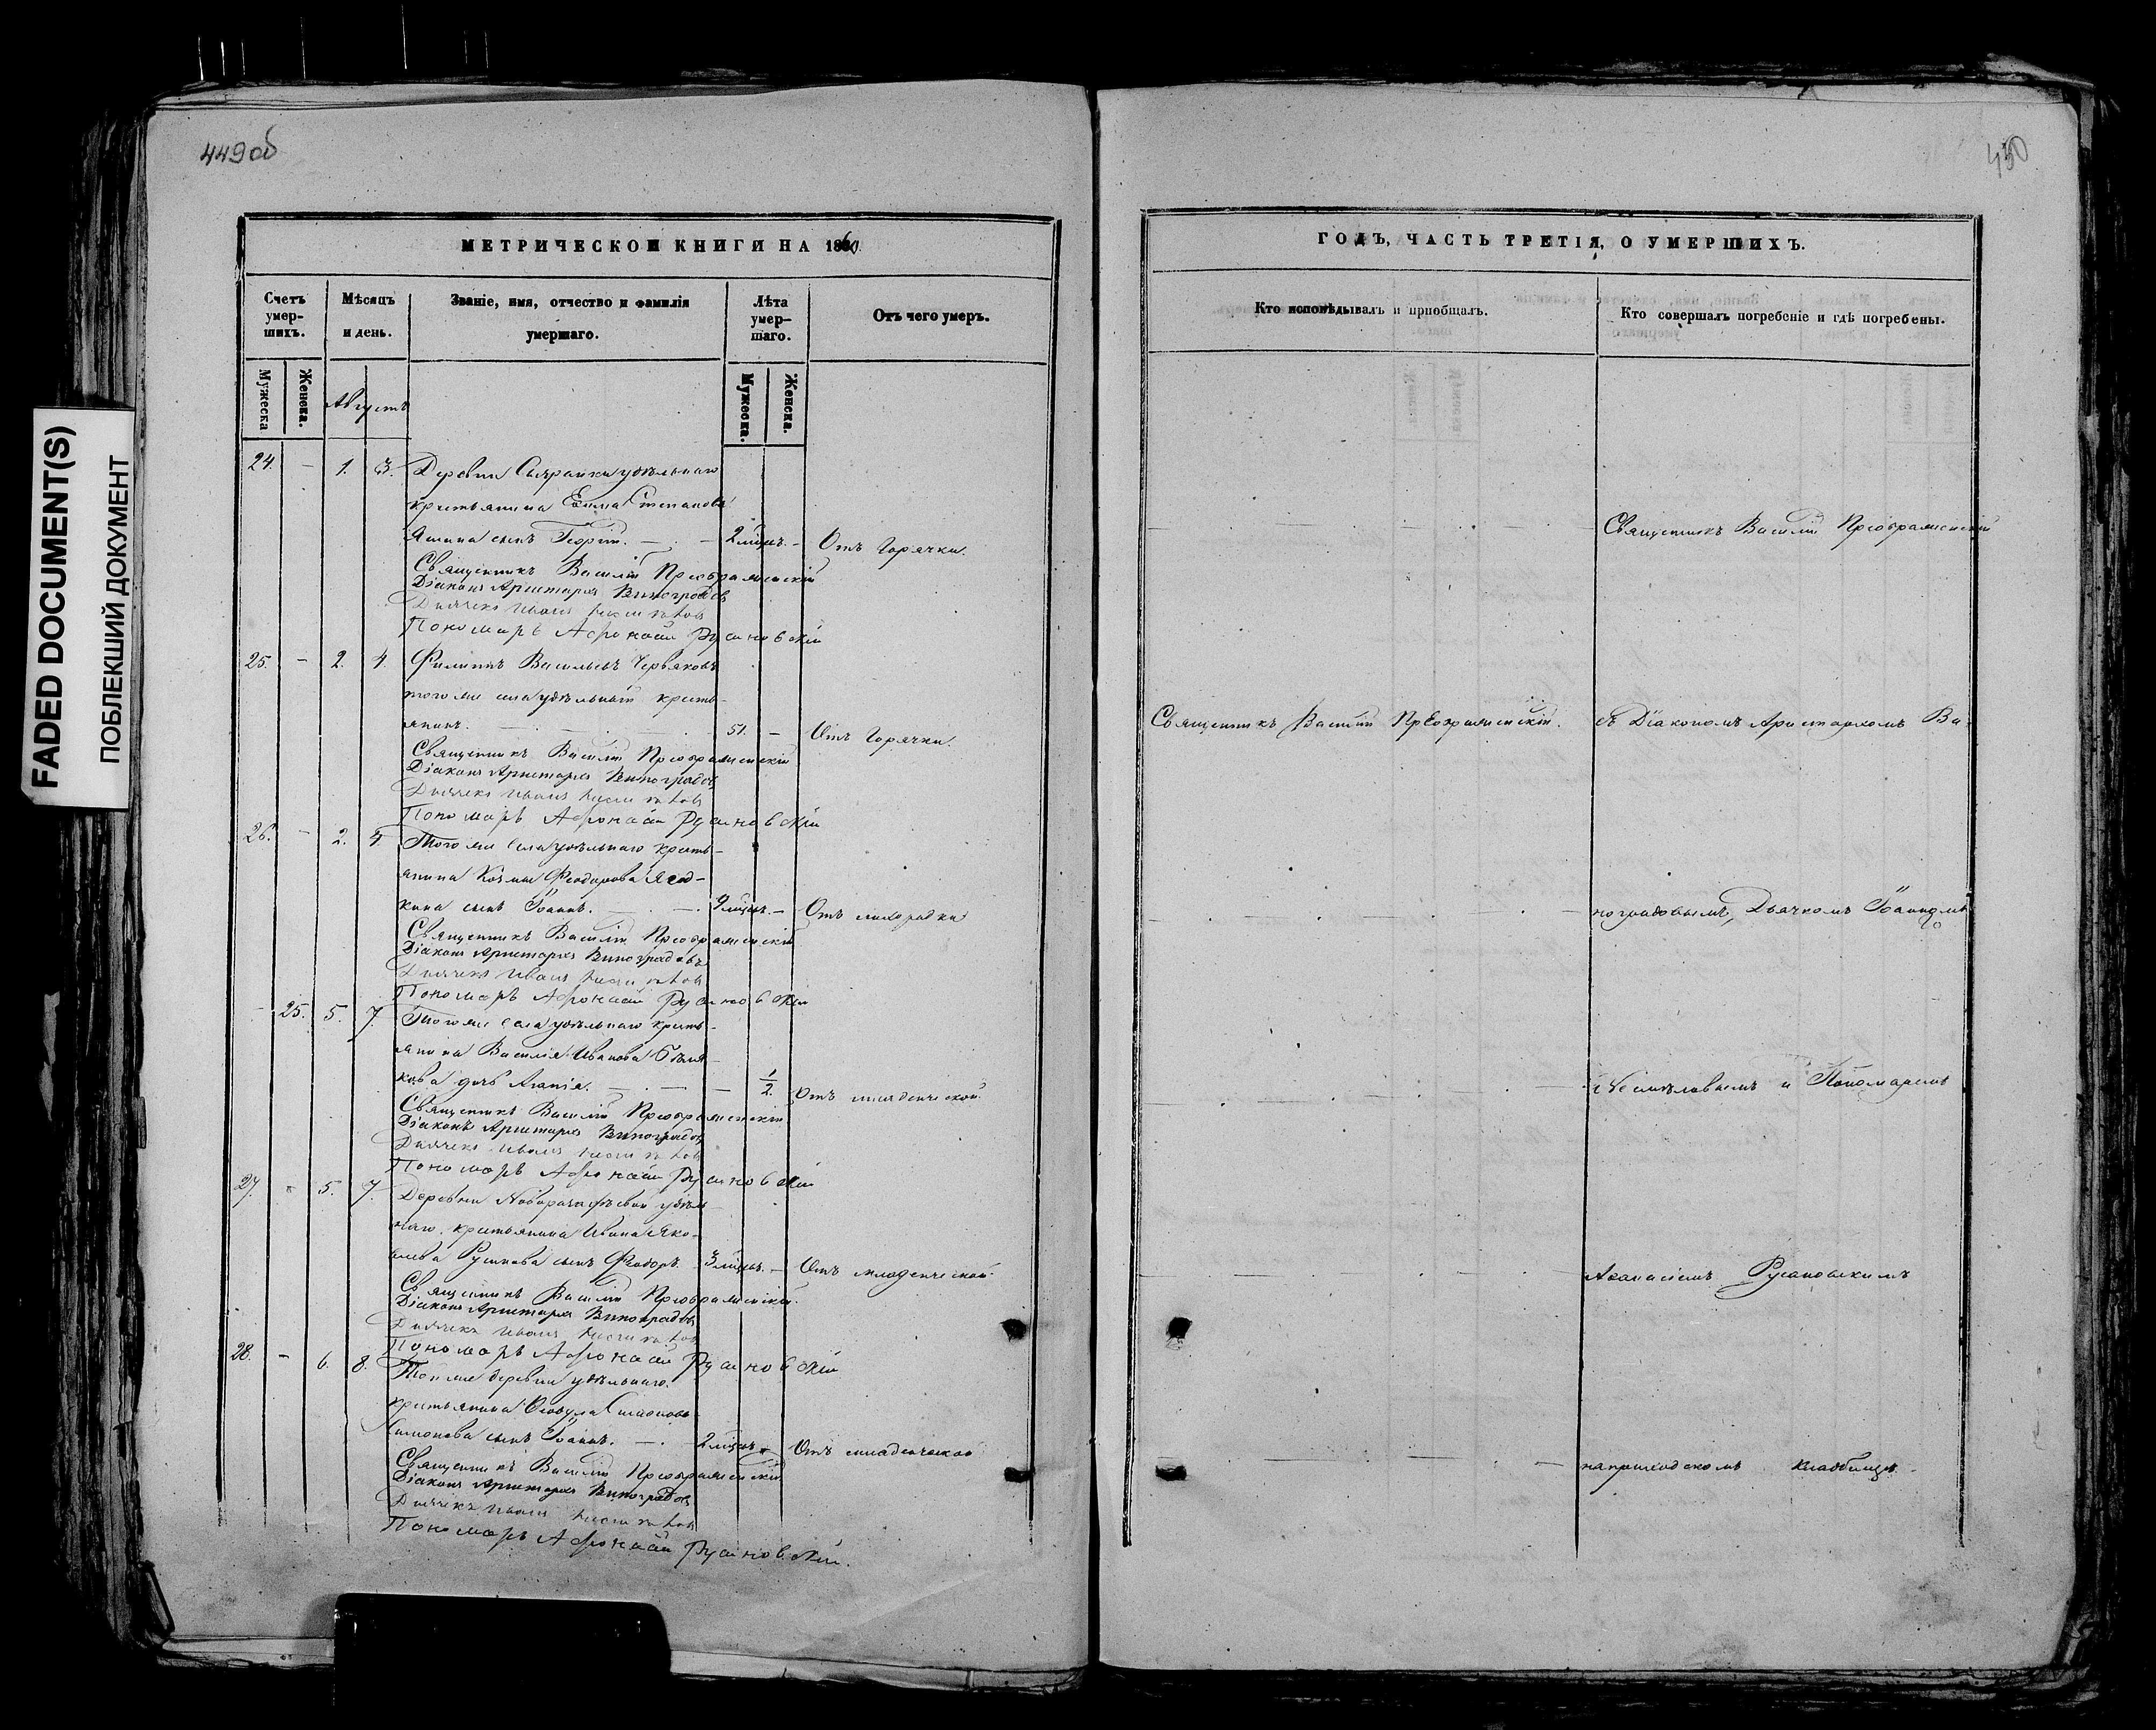 449об
450
FADED DOCUMENT(S)
ПОБЛЕКШИЙ ДОКУМЕНТ
МЕТРИЧЕСКОЙ КНИГИ НА 1860
Счетъ умер-шихъ.
Мѣсяцъ и день.
Званіе, имя, отчество и фамилія умершаго.
Лѣта умер-шаго.
Отъ чего умеръ.
Мужеска
Женска.
Августъ
Мужеска.
Женска.
24. – 1. 3. Деревни удѣльнаго
крестьянина Степанова
сынъ Георгій. – 2 мѣсяц. – Отъ горячки.
Священникъ Василій Преображенскій
Діаконъ Аристархъ Виноградовъ
Дьячекъ Иванъ
Пономарь Афонасій Русановскій
25. – 2. 4. Филиппъ Васильевъ Червяковъ
того же села удѣльный кресть-
янинъ. 51. – Отъ горячки.
Священникъ Василій Преображенскій
Діаконъ Аристархъ Виноградовъ
Дьячекъ Иванъ
Пономарь Афонасій Русановскій
26. – 2. 4. Того же села удѣльнаго кресть-
янина Козмы Феодорова Ягод-
кина сынъ Іоаннъ. 9 мѣсяц. – Отъ лихорадки
Священникъ Василій Преображенскій
Діаконъ Аристархъ Виноградовъ
Дьячекъ Иванъ
Пономарь Афонасій Русановскій
– 25. 5. 7. Того же села удѣльнаго кресть-
янина Василія Иванова Бѣля-
кова дочь Агапія. – 1/2. Отъ младенческой.
Священникъ Василій Преображенскій
Діаконъ Аристархъ Виноградовъ
Дьячекъ Иванъ
Пономарь Афонасій Русановскій
27. – 5. 7. Деревни удѣль-
наго крестьянина Ивана Яко-
влева сынъ Феодоръ. 3 мѣсяц. – Отъ младенческой.
Священникъ Василій Преображенскій.
Діаконъ Аристархъ Виноградовъ
Дьячекъ Иванъ
Пономарь Афонасій Русановскій
28. – 6. 8. Той же деревни удѣльнаго
крестьянина
сынъ Іоаннъ. – 2 мѣсяц. – Отъ младенческой
Священникъ Василій Преображенскій
Діаконъ Аристархъ Виноградовъ
Дьячекъ Иванъ
Пономарь Афонасій Русановскій.
ГОДЪ, ЧАСТЬ ТРЕТІЯ, О УМЕРШИХЪ.
Кто исповѣдывалъ и пріобщалъ.
Кто совершалъ погребеніе и гдѣ погребены.
Священникъ Василій Преображенскій
Священникъ Василій Преображенскій.
съ Діакономъ Аристархомъ Ви-
ноградовымъ, Дьячкомъ Іоанномъ
Несмѣловымъ и Пономаремъ
Афанасіемъ Русановскимъ
на приходскомъ кладбищѣ.